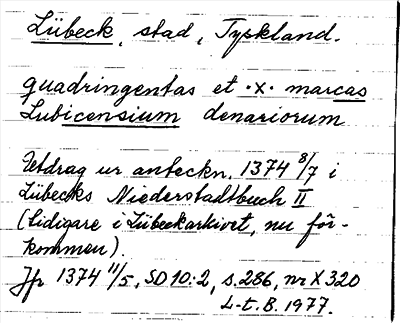 Lübeck, stad, Tyskland.
quadringentas et .x. marcas
Lubicensium denariorum
Utdrag ur anteckn. 1374 8/7 i
Lübecks Niederstadtbuch II
(tidigare i Lübeckarkivet, nu för-
kommen).
Jfr 1374 11/5, SD 10:2, s. 286, nr X 320
L-t. B. 1977.